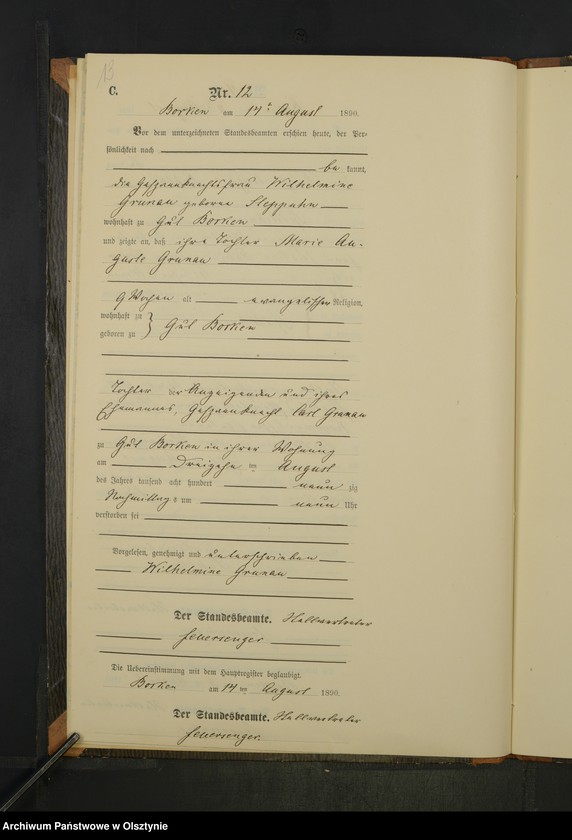 13
C.
Nr. 12
Borken am 14ten August 1890.
Vor dem unterzeichneten Standesbeamten erschien heute, der Per-
sönlichkeit nach
be kannt,
die Gespannknechtsfrau Wilhelmine
Grunau geborene Steppuhn
wohnhaft zu Gut Borken
und zeigte an, daß ihre Tochter Marie Au-
guste Grunau
9 Wochen alt evangelischer Religion,
wohnhaft zu
geboren zu } Gut Borken
Tochter der Anzeigenden und ihres
Ehemannes, Gespannknecht Carl Grunau
zu Gut Borken in ihrer Wohnung
am Dreizehnten August
des Jahres tausend acht hundert neun zig
Nachmittags um neun Uhr
verstorben sei
Vorgelesen, genehmigt und unterschrieben
Wilhelmine Grunau
Der Standesbeamte.
Feuersenger
Die Uebereinstimmung mit dem Hauptregister beglaubigt.
Borken am 14 ten August 1890.
Der Standesbeamte.
Feuersenger.
Archiwum Państwowe w Olsztynie